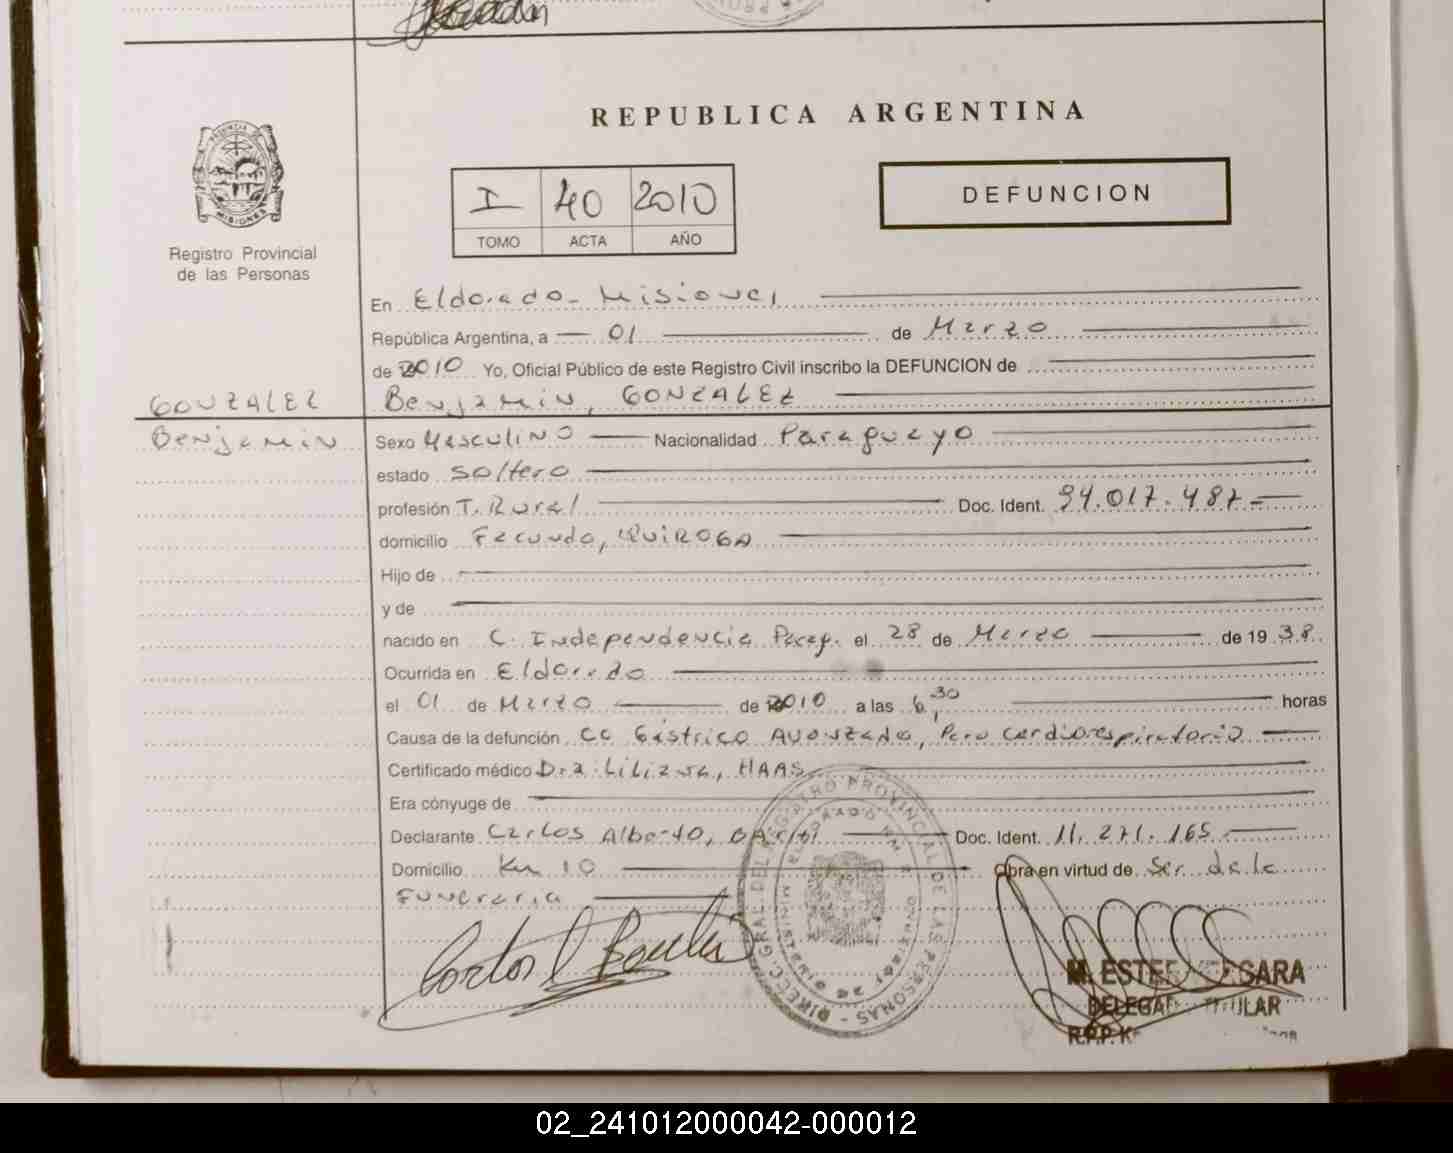 REPUBLICA ARGENTINA
I 40 2010
TOMO ACTA AÑO
DEFUNCION
PROVINCIA DE MISIONES
Registro Provincial
de las Personas
En Eldorado - Misiones
República Argentina, a 01 de Marzo
de 2010 Yo, Oficial Público de este Registro Civil inscribo la DEFUNCION de
GONZALEZ Benjamin, GONZALEZ
Benjamin Sexo Masculino Nacionalidad Paraguayo
estado soltero
profesión T. Rural Doc. Ident. 94.017.487.-
domicilio Facundo, QUIROGA
Hijo de
y de
nacido en C. Independencia Parag. el 28 de Marzo de 1938
Ocurrida en Eldorado
el 01 de Marzo de 2010 a las 6,30 horas
Causa de la defunción Cc Gástrico Avanzado, Paro cardiorespiratorio
Certificado médico Dra. Liliana, HAAS
Era cónyuge de
Declarante Carlos Alberto, Doc. Ident. 11.271.165
Domicilio Km 10 Obra en virtud de Ser de la
Funeraria
Carlos
DIRECC. GRAL. DEL REGISTRO PROVINCIAL DE LAS PERSONAS
M. ESTER
DELEGADA TITULAR
R.P.P.
02_241012000042-000012